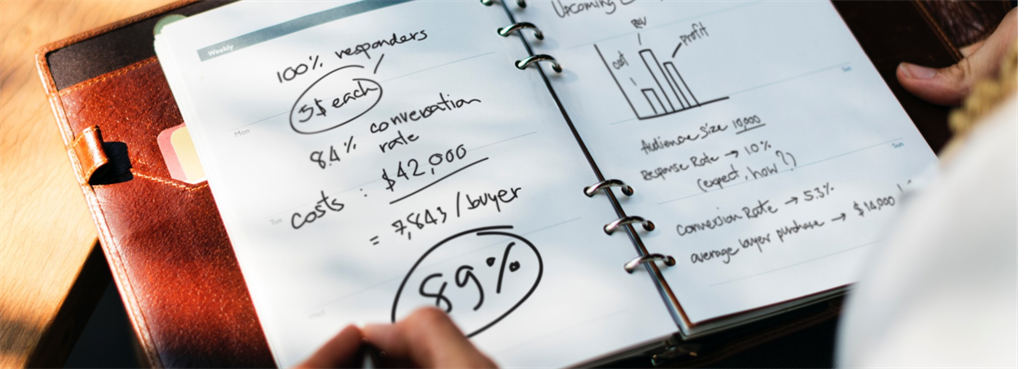 Weekly
100% responders
5$ each
84% conversation
rate
costs : $42,000
= 7,843/buyer
89%
Upcoming
cost
rev
profit
Audience size 10,000
Response Rate → 10%
(expect, how?)
Conversion Rate → 5.3%
average buyer purchase → $14,000